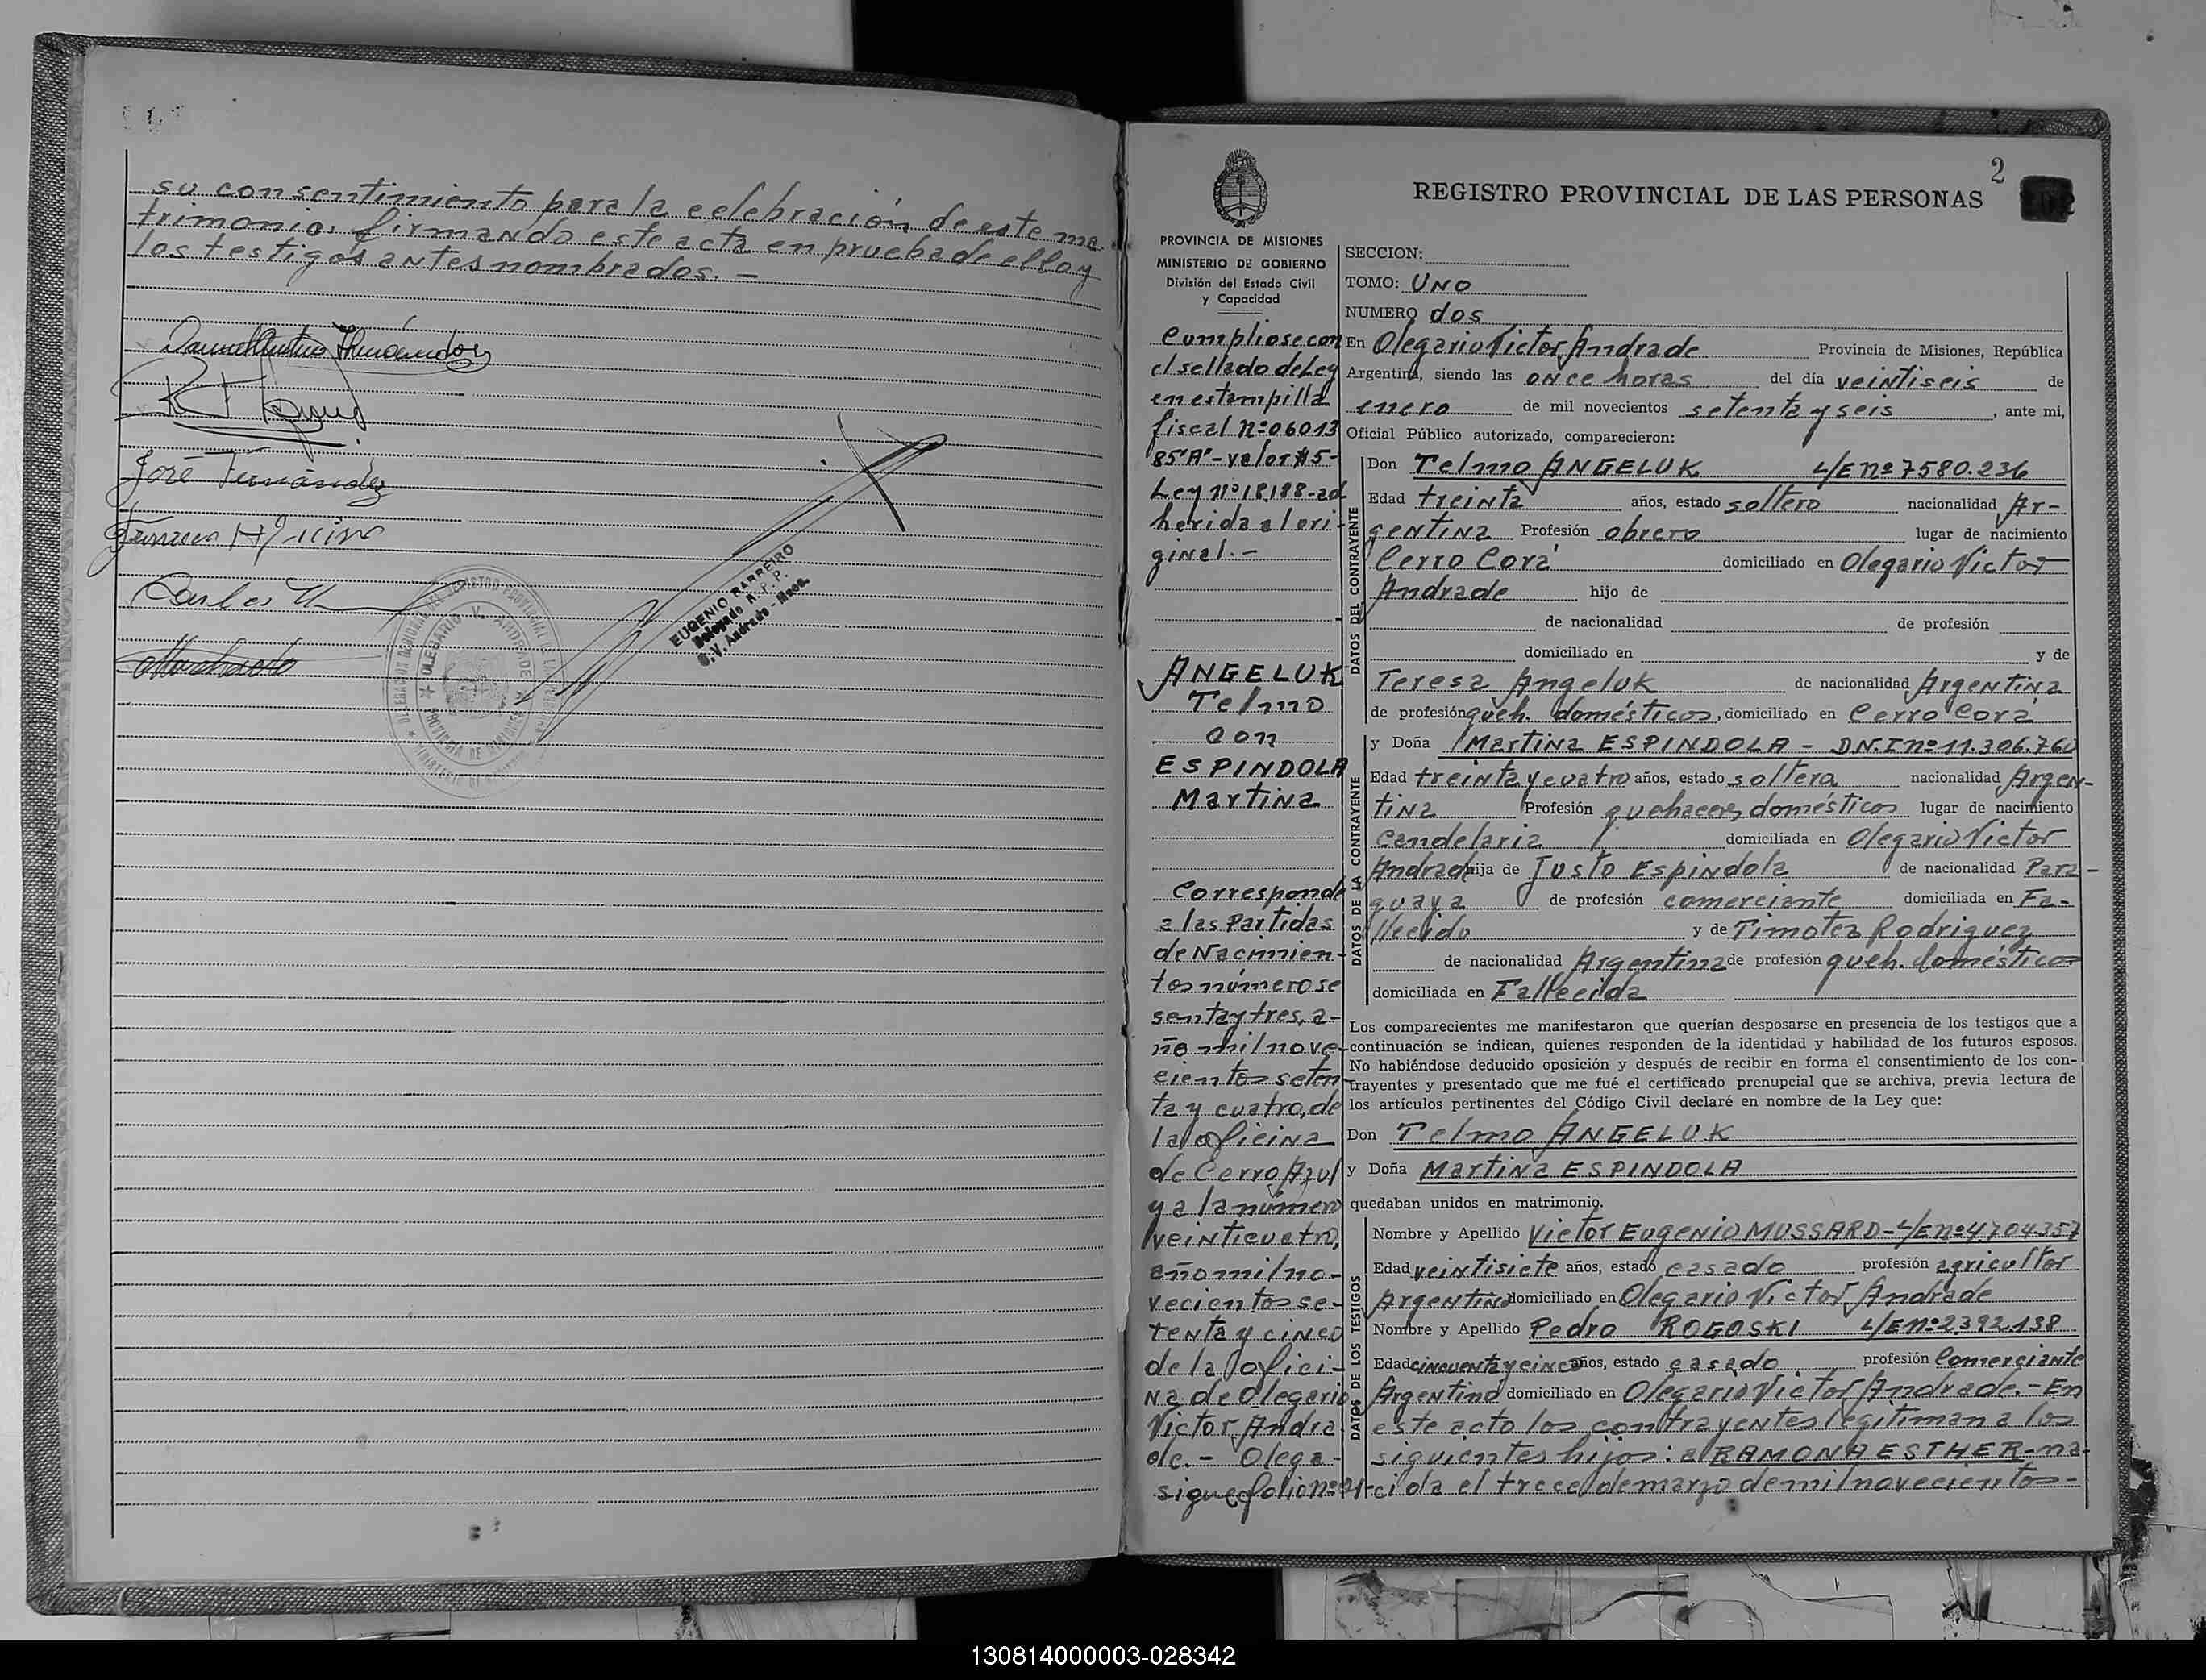 su consentimiento para la celebración de este ma
trimonio, firmando este acta en prueba de ello y
los testigos antes nombrados. -
José Fernández
Carlos
EUGENIO BARREIRO
Delegado R. P. P.
O. V. Andrade - Mnes.
OLEGARIO V. ANDRADE
PROVINCIA DE MISIONES
2
REGISTRO PROVINCIAL DE LAS PERSONAS
202
PROVINCIA DE MISIONES
MINISTERIO DE GOBIERNO
División del Estado Civil
y Capacidad
Cumpliose con
el sellado de Ley
en estampilla
fiscal nº 06013
85"A"- valor $5-
Ley nº 18188-ad
herida al ori-
ginal. -
ANGELUK
Telmo
con
ESPINDOLA
Martina
Corresponde
a las Partidas
de Nacimien-
tos número se
senta y tres, a-
ño mil nove-
cientos seten-
ta y cuatro, de
la oficina
de Cerro Azul
y a la número
veinticuatro,
año mil no-
vecientos se-
tenta y cinco
de la ofici-
na de Olegario
Victor Andra
de. - Olega-
sigue folio nº 21-
SECCION:
TOMO: UNO
NUMERO dos
En Olegario Victor Andrade Provincia de Misiones, República
Argentina, siendo las once horas del día veintiseis de
enero de mil novecientos setenta y seis, ante mi,
Oficial Público autorizado, comparecieron:
DATOS DEL CONTRAYENTE
Don Telmo ANGELUK L/E nº 7580.236
Edad treinta años, estado soltero nacionalidad Ar-
gentina Profesión obrero lugar de nacimiento
Cerro Corá domiciliado en Olegario Victor
Andrade hijo de
de nacionalidad de profesión
domiciliado en y de
Teresa Angeluk de nacionalidad Argentina
de profesión queh. domésticos, domiciliado en Cerro Corá
DATOS DE LA CONTRAYENTE
y Doña Martina ESPINDOLA - D.N.I nº 11.306.760
Edad treinta y cuatro años, estado soltera nacionalidad Argen-
tina Profesión quehaceres domésticos lugar de nacimiento
Candelaria domiciliada en Olegario Victor
Andrade hija de Justo Espindola de nacionalidad Para-
guaya de profesión comerciante domiciliada en Fa-
llecido y de Timotea Rodriguez
de nacionalidad Argentina de profesión queh. domésticos
domiciliada en Fallecida
Los comparecientes me manifestaron que querían desposarse en presencia de los testigos que a
continuación se indican, quienes responden de la identidad y habilidad de los futuros esposos.
No habiéndose deducido oposición y después de recibir en forma el consentimiento de los con-
trayentes y presentado que me fué el certificado prenupcial que se archiva, previa lectura de
los artículos pertinentes del Código Civil declaré en nombre de la Ley que:
Don Telmo ANGELUK
y Doña Martina ESPINDOLA
quedaban unidos en matrimonio.
DATOS DE LOS TESTIGOS
Nombre y Apellido Victor Eugenio MUSSARD - L/E nº 4.704.357
Edad veintisiete años, estado casado profesión agricultor
Argentino domiciliado en Olegario Victor Andrade
Nombre y Apellido Pedro ROGOSKI L/E nº 2392.138
Edad cincuenta y cinco años, estado casado profesión Comerciante
Argentino domiciliado en Olegario Victor Andrade. - En
este acto los contrayentes legitiman a los
siguientes hijos: a RAMONA ESTHER - na-
cida el trece de marzo de mil novecientos -
130814000003-028342